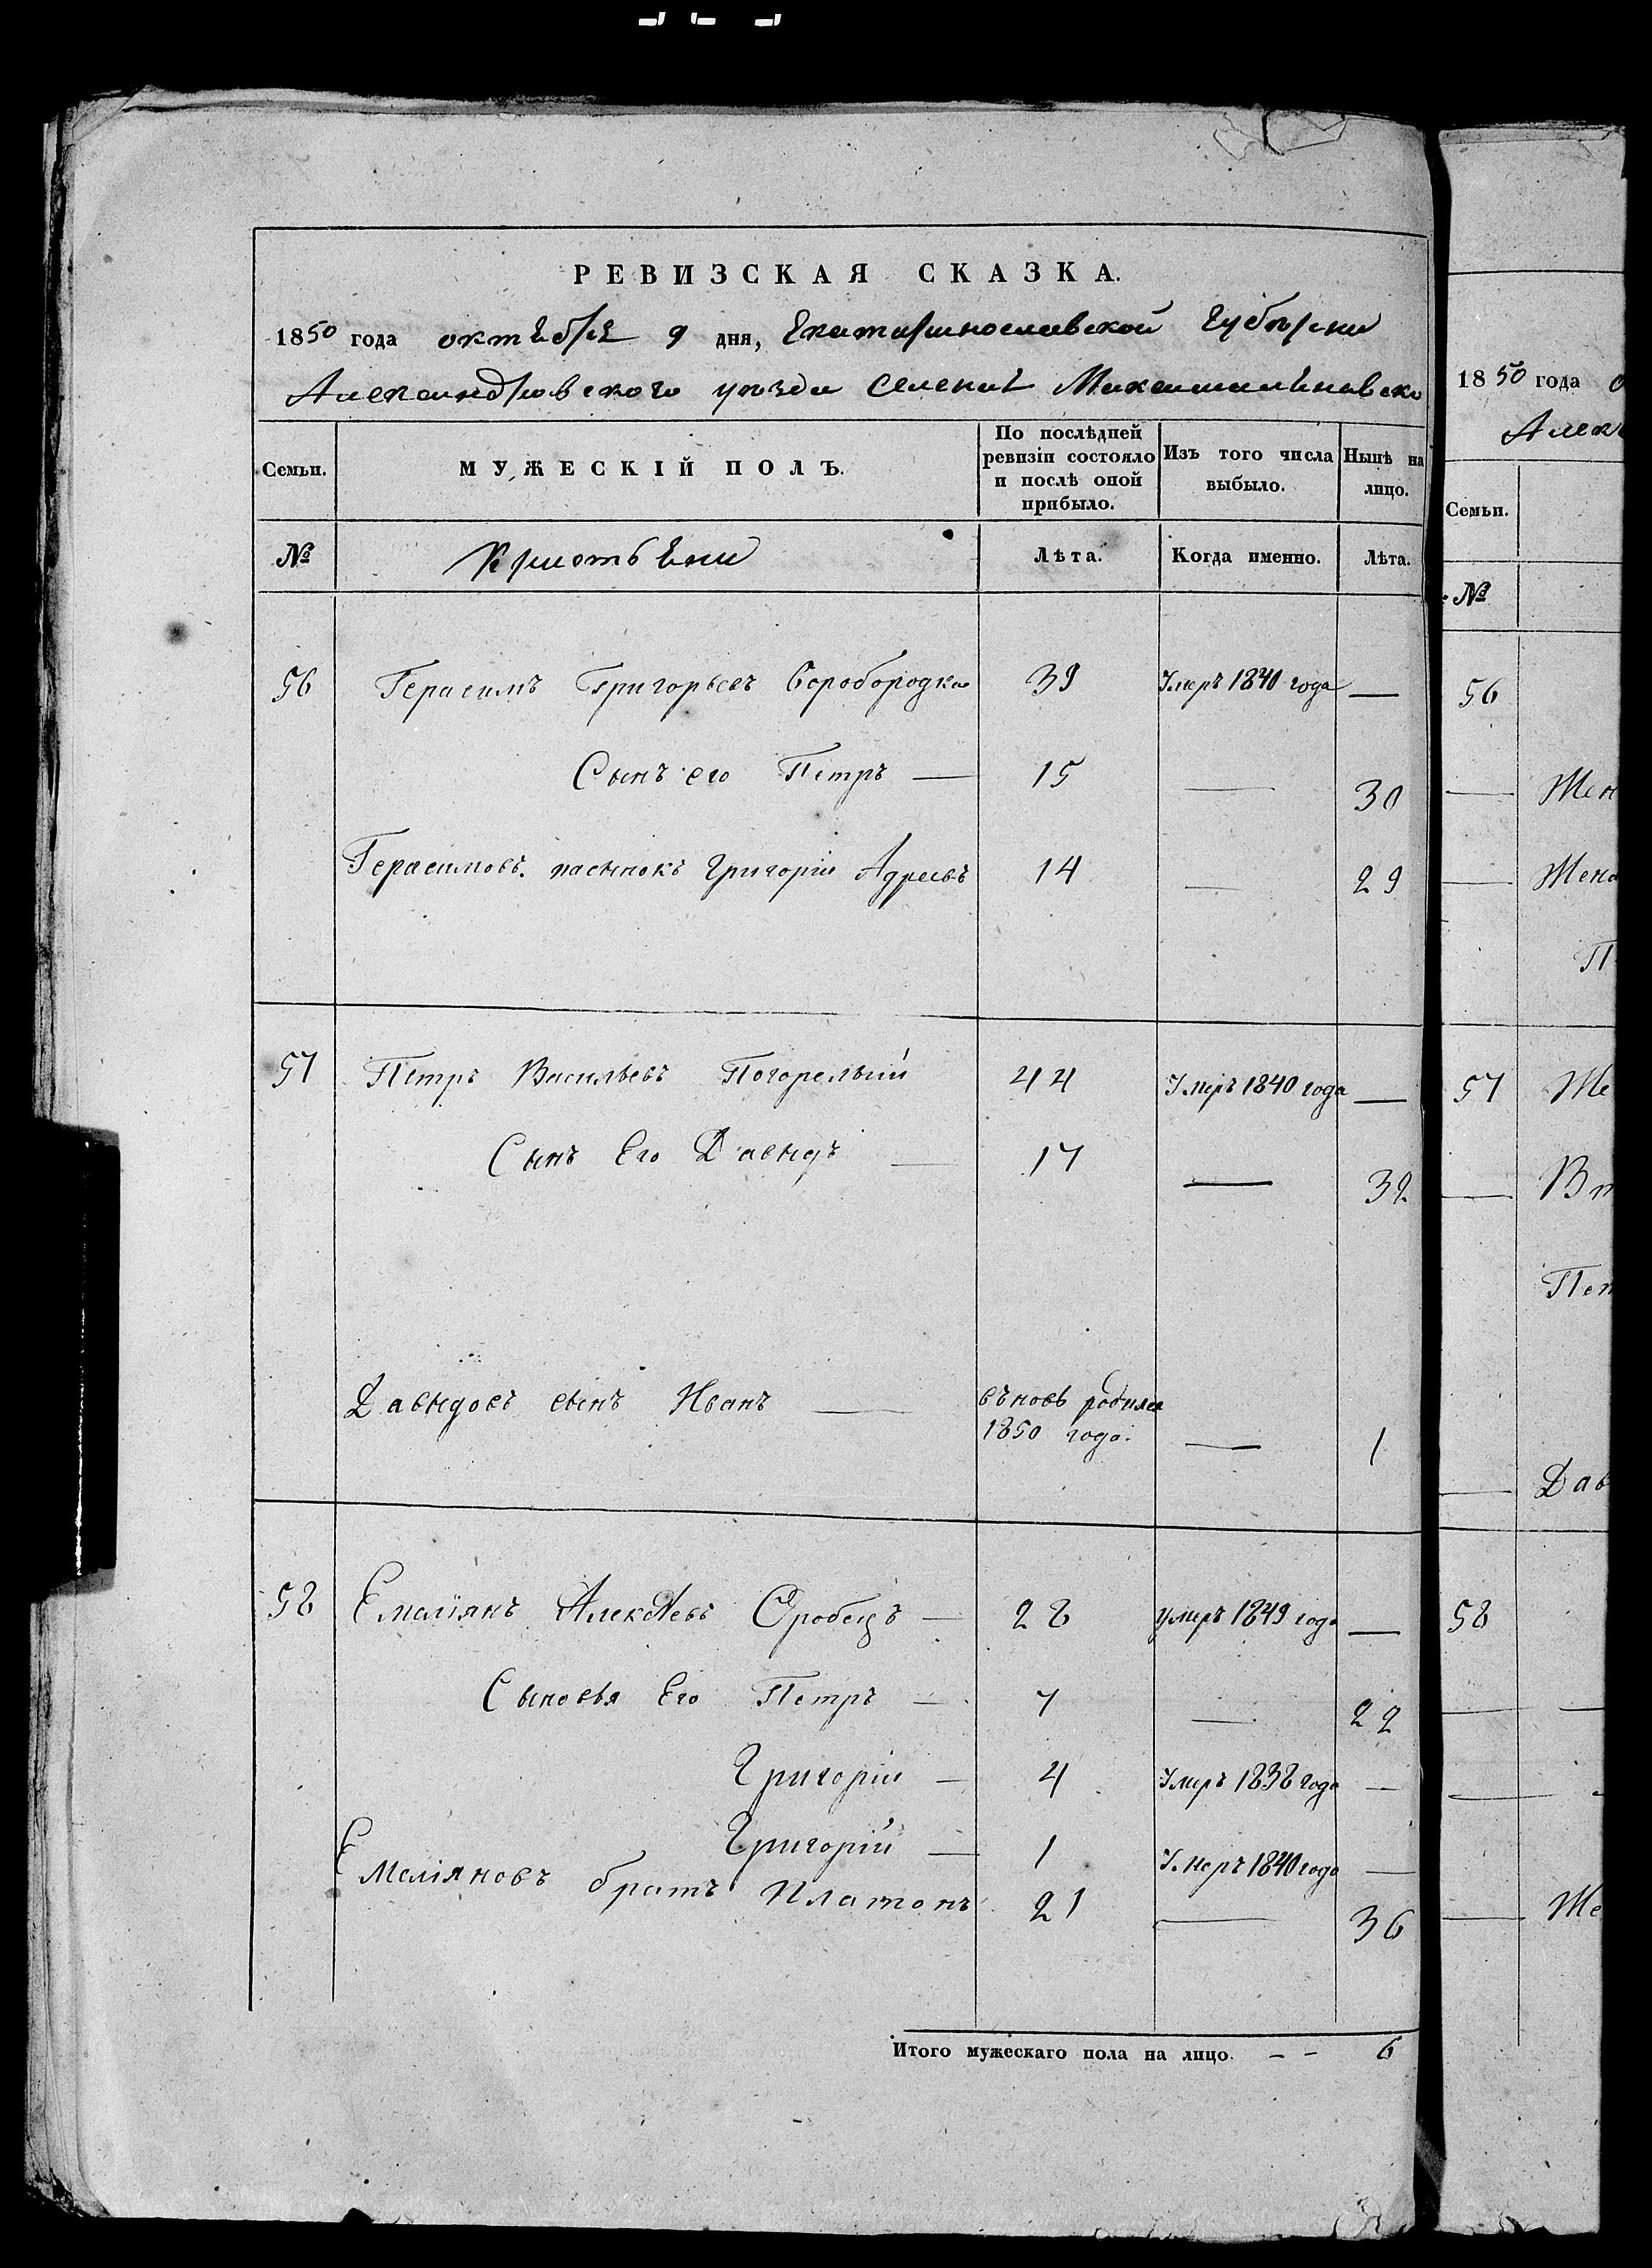 РЕВИЗСКАЯ СКАЗКА.
1850 года октября 9 дня, Екатеринославской губернии
Александровского уезда селения Максимильяновско
Семьи. МУЖЕСКІЙ ПОЛЪ. По послѣдней ревизіи состояло и послѣ оной прибыло. Изъ того числа выбыло. Нынѣ на лицо.
№ Крестьяни Лѣта. Когда именно. Лѣта.
56 Герасимъ Григорьевъ Серобородка 39 Умеръ 1840 года —
Сынъ его Петръ — 15 — 30
Герасимовъ пасынокъ Григорій Адреевъ 14 — 29
57 Петръ Васильевъ Погорелый 44 Умеръ 1840 года —
Сынъ Его Давыдъ — 17 — 32
Давыдовъ сынъ Иванъ — въновь родился
1850 года. — 1
58 Емаліянъ Алексѣевъ — 28 умеръ 1849 года —
Сыновья Его Петръ — 7 — 22
Григорій — 4 Умеръ 1838 года —
Григорій — 1 Умеръ 1840 года —
Емеліяновъ братъ Платонъ 21 — 36
Итого мужескаго пола на лицо. - - 6
1850 года
Алек
Семьи.
№
56
— Жен
— Жена
П
57 Же
— Вт
Пет
— Дав
58
— Же